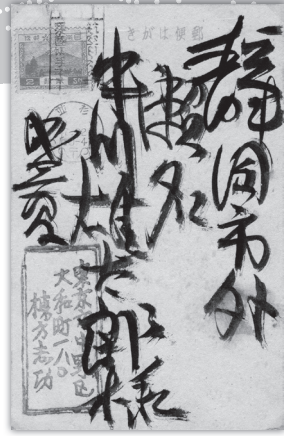 郵便はがき
静岡市外
中川雄太郎様
東京市中野区
大和町一八〇
棟方志功